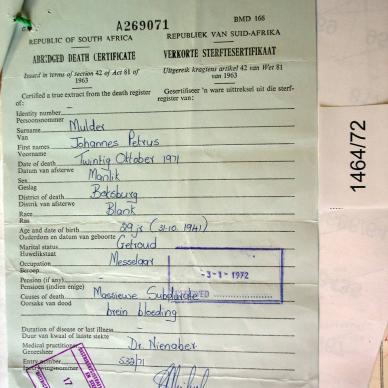 A269071
BMD 166
REPUBLIC OF SOUTH AFRICA REPUBLIEK VAN SUID-AFRIKA
ABRIDGED DEATH CERTIFICATE VERKORTE STERFTESERTIFIKAAT
Issued in terms of section 42 of Act 81 of 1963
Uitgereik kragtens artikel 42 van Wet 81 van 1963
Certified a true extract from the death register of:
Gesertifiseer 'n ware uittreksel uit die sterfregister van:
Identity number
Persoonsnommer
Surname Mulder
Van
First names Johannes Petrus
Voorname
Date of death Twintig Oktober 1971
Datum van afsterwe
Sex Manlik
Geslag
District of death Boksburg
Distrik van afsterwe
Race Blank
Ras
Age and date of birth 29 jr (31.10.1941)
Ouderdom en datum van geboorte
Marital status Getroud
Huwelikstaat
Occupation Messelaar
Beroep
-3-1-1972
Pension (if any) -
Pensioen (indien enige)
Causes of death Massiewe Subdurale
Oorsake van dood brein bloeding
Duration of disease or last illness -
Duur van kwaal of laaste siekte
Medical practitioner Dr. Nienaber
Geneesheer
Entry number 533/71
Inskrywingsnommer
17
1464/72